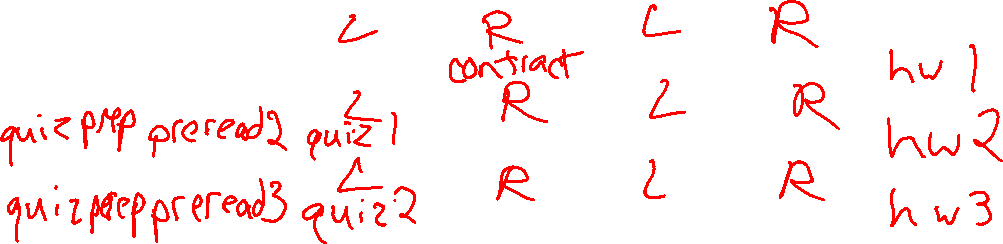 L R L R
contract hw1
L R L R
quizprep preread2 quiz1 hw2
L R L R
quizprep preread3 quiz2 hw3